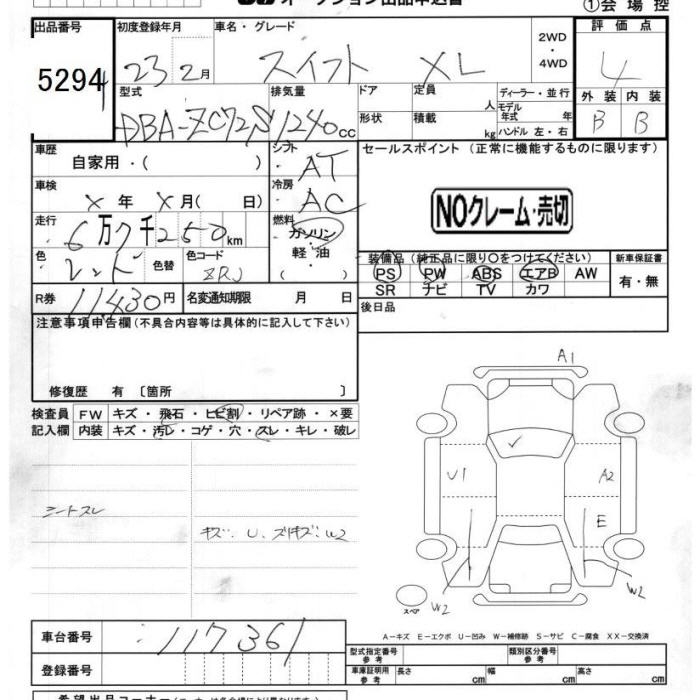 オークション出品申込書
①会場控
出品番号 初度登録年月 車名・グレード 2WD ・ 4WD 評価点
5294 23 2月 スイフト XL 4
型式 排気量 ドア 定員 人 ディーラー・並行 外装 内装
DBA-ZC72S 1240cc 形状 積載 kg モデル年式 年 B B
ハンドル 左・右
車歴 自家用・( ) シフト AT セールスポイント (正常に機能するものに限ります)
車検 X 年 X 月( 日) 冷房 AC
NOクレーム・売切
走行 6万7千250km 燃料 ガソリン 軽油 ・( )
色 レッド 色替 色コード ZRJ
装備品 (純正品に限り○をつけてください) 新車保証書
PS PW ABS エアB AW 有・無
SR ナビ TV カワ
R券 11430円 名変通知期限 月 日 後日品
注意事項申告欄 (不具合内容等は具体的に記入して下さい)
修復歴 有 〔箇所 〕
検査員 FW キズ・飛石・ヒビ割・リペア跡・×要
記入欄 内装 キズ・汚レ・コゲ・穴・スレ・キレ・破レ
A1
U1 A2
E
シートスレ
キズ・U、スリキズ・W2
W2 W2
スペア
A-キズ E-エクボ U-凹み W-補修跡 S-サビ C-腐食 XX-交換済
車台番号 117361
型式指定番号 参考 類別区分番号 参考
登録番号 車庫証明用 参考 長さ cm 幅 cm 高さ cm
希望出品コーナー